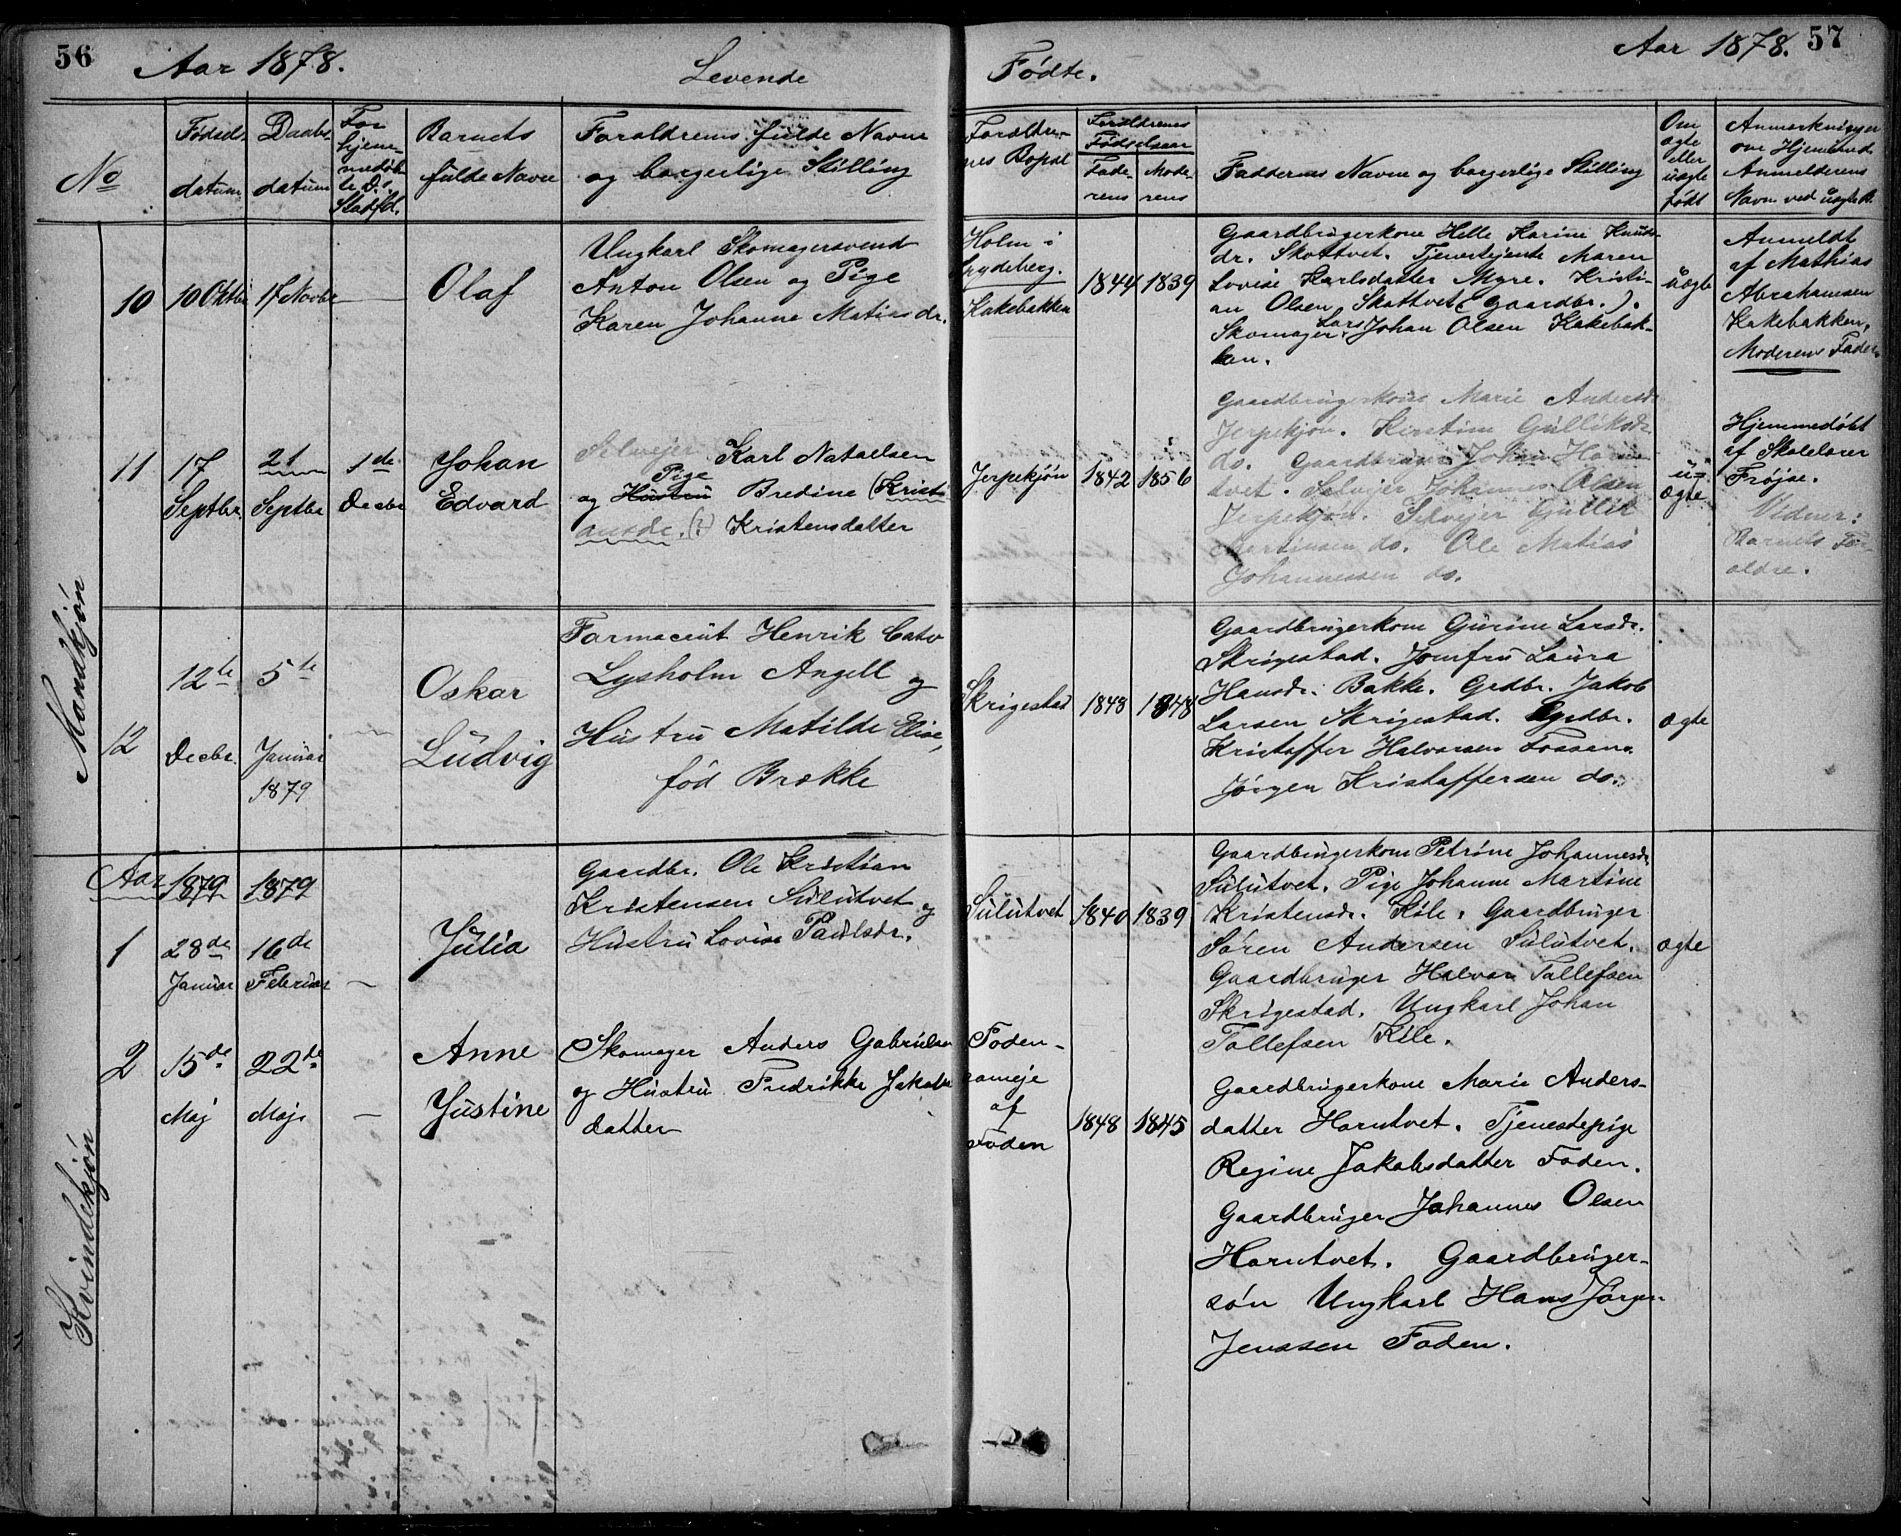 56 Aar 1878. Levende
Fødte. Aar 1878. 57
No
Fødsels-
datum
Daabs-
datum
For
hjem-
medøb-
te D's
Stadf.d.
Barnets
fulde Navn
Forældrenes fulde Navne
og borgerlige Stilling
Forældre-
nes Bopæl
Forældrenes
Fødselsaar
Fade-
rens
Mode-
rens
Faddernes Navne og borgerlige Stilling
Om
ægte
eller
uægte
født
Anmærkninger
om Hjemmed.
Anmelderens
Navn ved uægte B.
Mandkjøn
10
10 Oktbr
17 Novbr
—
Olaf
Ungkarl Skomagersvend
Anton Olsen og Pige
Karen Johanne Matiasdr.
Holm i
Spydeberg.
Kakebakken
1844
1839
Gaardbrugerkone Helle Karine Knuds-
dr. Skottvet. Tjenestejente Maren
Lovise Karlsdatter Myre. Kristi-
an Olsen Skottvet (Gaardbr.).
Skomager Lars Johan Olsen Kakebak-
ken.
uægte
Anmeldt
af Mathias
Abrahamsen
Kakebakken,
Moderens Fader.
11
17
Septbr.
21
Septbr
1de
Decbr
Johan
Edvard
Selvejer Karl Nataelsen
Pige
og Hustru Bredine (Krist-
ansdr. (?) Kristensdatter
Jerpekjøn
1842
1856
Gaardbrugerkone Marie Andersdr
Jerpekjøn. Kirstine Gulliksdr
do. Gaardbruger Johan Hornt-
tvet. Selvejer Johannes Olsen
Jerpekjøn. Selvejer Gullik
Martinsen do. Ole Matias
Johannessen do.
u-
ægte
Hjemmedøbt
af Skolelærer
Frøjse.
Vidner:
Barnets For-
ældre.
12
12te
Decbr.
5te
Januar
1879
—
Oskar
Ludvig
Farmaceut Henrik Cato
Lysholm Angell og
Hustru Matilde Elise,
fød Brække
Skrigestad
1848
1848
Gaardbrugerkone Gurine Larsdr.
Skrigestad. Jomfru Laura
Hansdr. Bakke. Grdbr. Jakob
Larsen Skrigestad. Grdbr.
Kristoffer Halvorsen Fossen.
Jørgen Kristoffersen do.
ægte
Aar 1879 1879
Kvindekjøn
1
28de
Januar
16de
Februar
—
Julia
Gaardbr. Ole Kristian
Kristensen Sulutvet og
Hustru Lovise Paulsdr.
Sulutvet
1840
1839
Gaardbrugerkone Petrine Johannesdr.
Sulutvet. Pige Johanne Martine
Kristensdr. Kile. Gaardbruger
Søren Andersen Sulutvet.
Gaardbruger Halvor Tollefsen
Skrigestad. Ungkarl Johan
Tollefsen Kile.
ægte
2
15de
Maj
22de
Maj
—
Anne
Justine
Skomager Anders Gabrielsen
og Hustru Fredrikke Jakobs
datter
Foden-
sameje
af
Foden
1848
1845
Gaardbrugerkone Marie Anders-
datter Horntvet. Tjenestepige
Regine Jakobsdatter Foden.
Gaardbruger Johannes Olsen
Horntvet. Gaardbruger-
søn Ungkarl Hans Jørgen
Jenssen Foden.